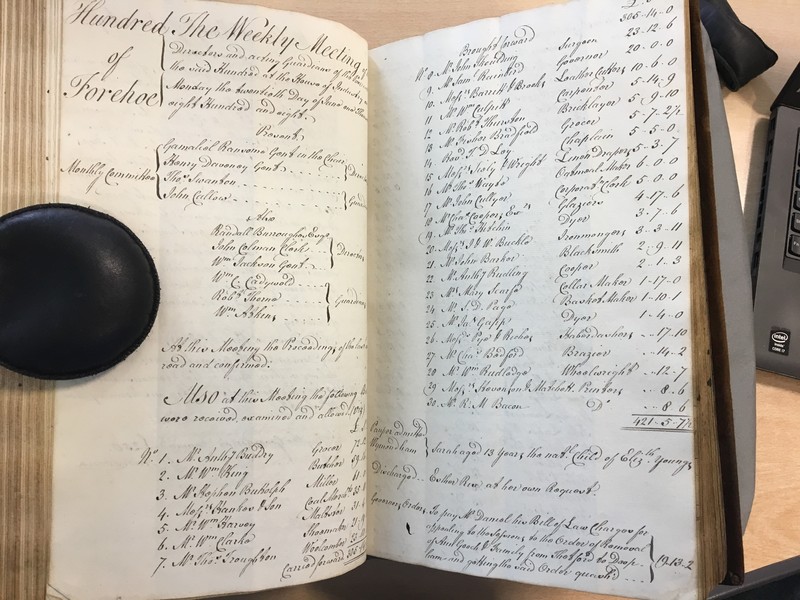 Hundred
of
Forehoe
The Weekly Meeting of
Directors and acting Guardians of the Poor
the said Hundred at the House of Industry on
Monday the twentieth Day of June one Thous
eight Hundred and eight.
Present
Monthly Committee
Gamaliel Ransome Gent in the Chair
Henry Devonay Gent
Thos Swanton
John Cullow
Direc
Guard
Also
Randall Burroughes Esqr
John Colman Clerk
Wm Jackson Gent
Wm C Cadywold
Robt Thorne
Wm Aiken
Directors
Guardians
At this Meeting the Proceedings of the last
read and confirmed.
Also at this Meeting the following
were received, examined and allowed
No 1. Mr Anthy Buddry Grocer
2. Mr Wm King Butcher
3. Mr Stephen Butolph Miller
4. Messrs Bankes & Son Coal Merchts
5. Mr Wm Harvey Maltster
6. Mr Wm Clarke Shoemaker
7. Mr Thos Troughton Woolcomber
Carried forward
£ s d
Brought forward 305-14-0
No 8. Mr John Surgeon 23-12-6
9. Mr Saml Reinbird Governor 20-0-0
10. Messrs Barrett & Brooks Leather Cutters 10-6-0
11. Mr Wm Culpitt Carpenter 5-14-9
12. Mr Robt Thurston Bricklayer 5-9-10
13. Mr Fisher Bradfield Grocer 5-7-2½
14. Revd T. D. Loy Chaplain 5-5-0
15. Messrs Sealy & Wright Linen Drapers 5-3-7
16. Mr Thos Haylo Oatmeal Maker 6-0-0
17. Mr John Cullyer Corporatn Clerk 5-0-0
18. Mr Coopers Exrs Glaziers 4-17-6
19. Mr Thos Kitchin Dyer 3-7-6
20. Messrs J & W. Buckle Ironmongers 3-3-11
21. Mr John Barker Blacksmith 2-9-11
22. Mr Anthy Rudling Cooper 2-1-3
23. Mrs Mary Scarfe Collar Maker 1-17-0
24. Mr S. D. Page Basket Maker 1-10-1
25. Mr Jas Gapp Dyer 1-4-0
26. Messrs Pye & Reches Haberdashers ..-17-10
27. Mr Chas Bedford Brazier ..-14-2
28. Mr Wm Rudledge Wheelwright ..-12-7
29. Messrs Stevenson & Matchett Printers ..-8-6
30. Mr R. M. Bacon Do ..-8-6
421-5-7½
Pauper admitted
Wymondham
Sarah aged 13 Years the natl Child of Elizth Youngs
Discharged. Esther Rix at her own Request.
General Orders
To pay Mr Daniel his Bill of Law Charges for
appealing to the Sessions to the Order of Removal
of Ann Goold & Family from Thetford to Deop-
ham and getting the said Order quash'd
19-13-2
intel
inside
CORE i7